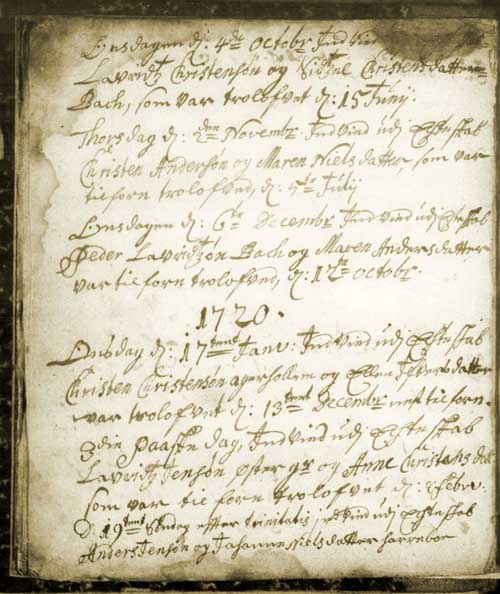 Onsdagen d: 4de Octobr Indvied
Lauridtz Christensøn og Sidzel Christensdatter
Bach, som var trolofvet d: 15 Junij.
Thorsdag d: 2den Novembr Indvied udj Echteskab
Christen Andersøn og Maren Nielsdatter, som var
tilforn trolofved, d: 5te Julij
Onsdagen d: 6te Decembr Indvied udj Echteskab
Peder Lauridtzøn Bach og Maren Andersdatter
var tilforn trolofved, d: 12te Octobr.
1720.
Onsdag d: 17tende Janv: Indvied udj Echteskab
Christen Christensøn agerhollem og Ellen Jepersdatter
var trolofvet d: 13tende Decembr tilforn
3die Paaske dag, Indvied udj Echteskab
Lauridtz Jensøn øster og Anne Christens
som var tilforn trolofvet d: Febr:
D: 19tende Søndag efter trinitatis Indvied udj Echteskab
Anders Jensøn og Johanne Nielsdatter harreboe